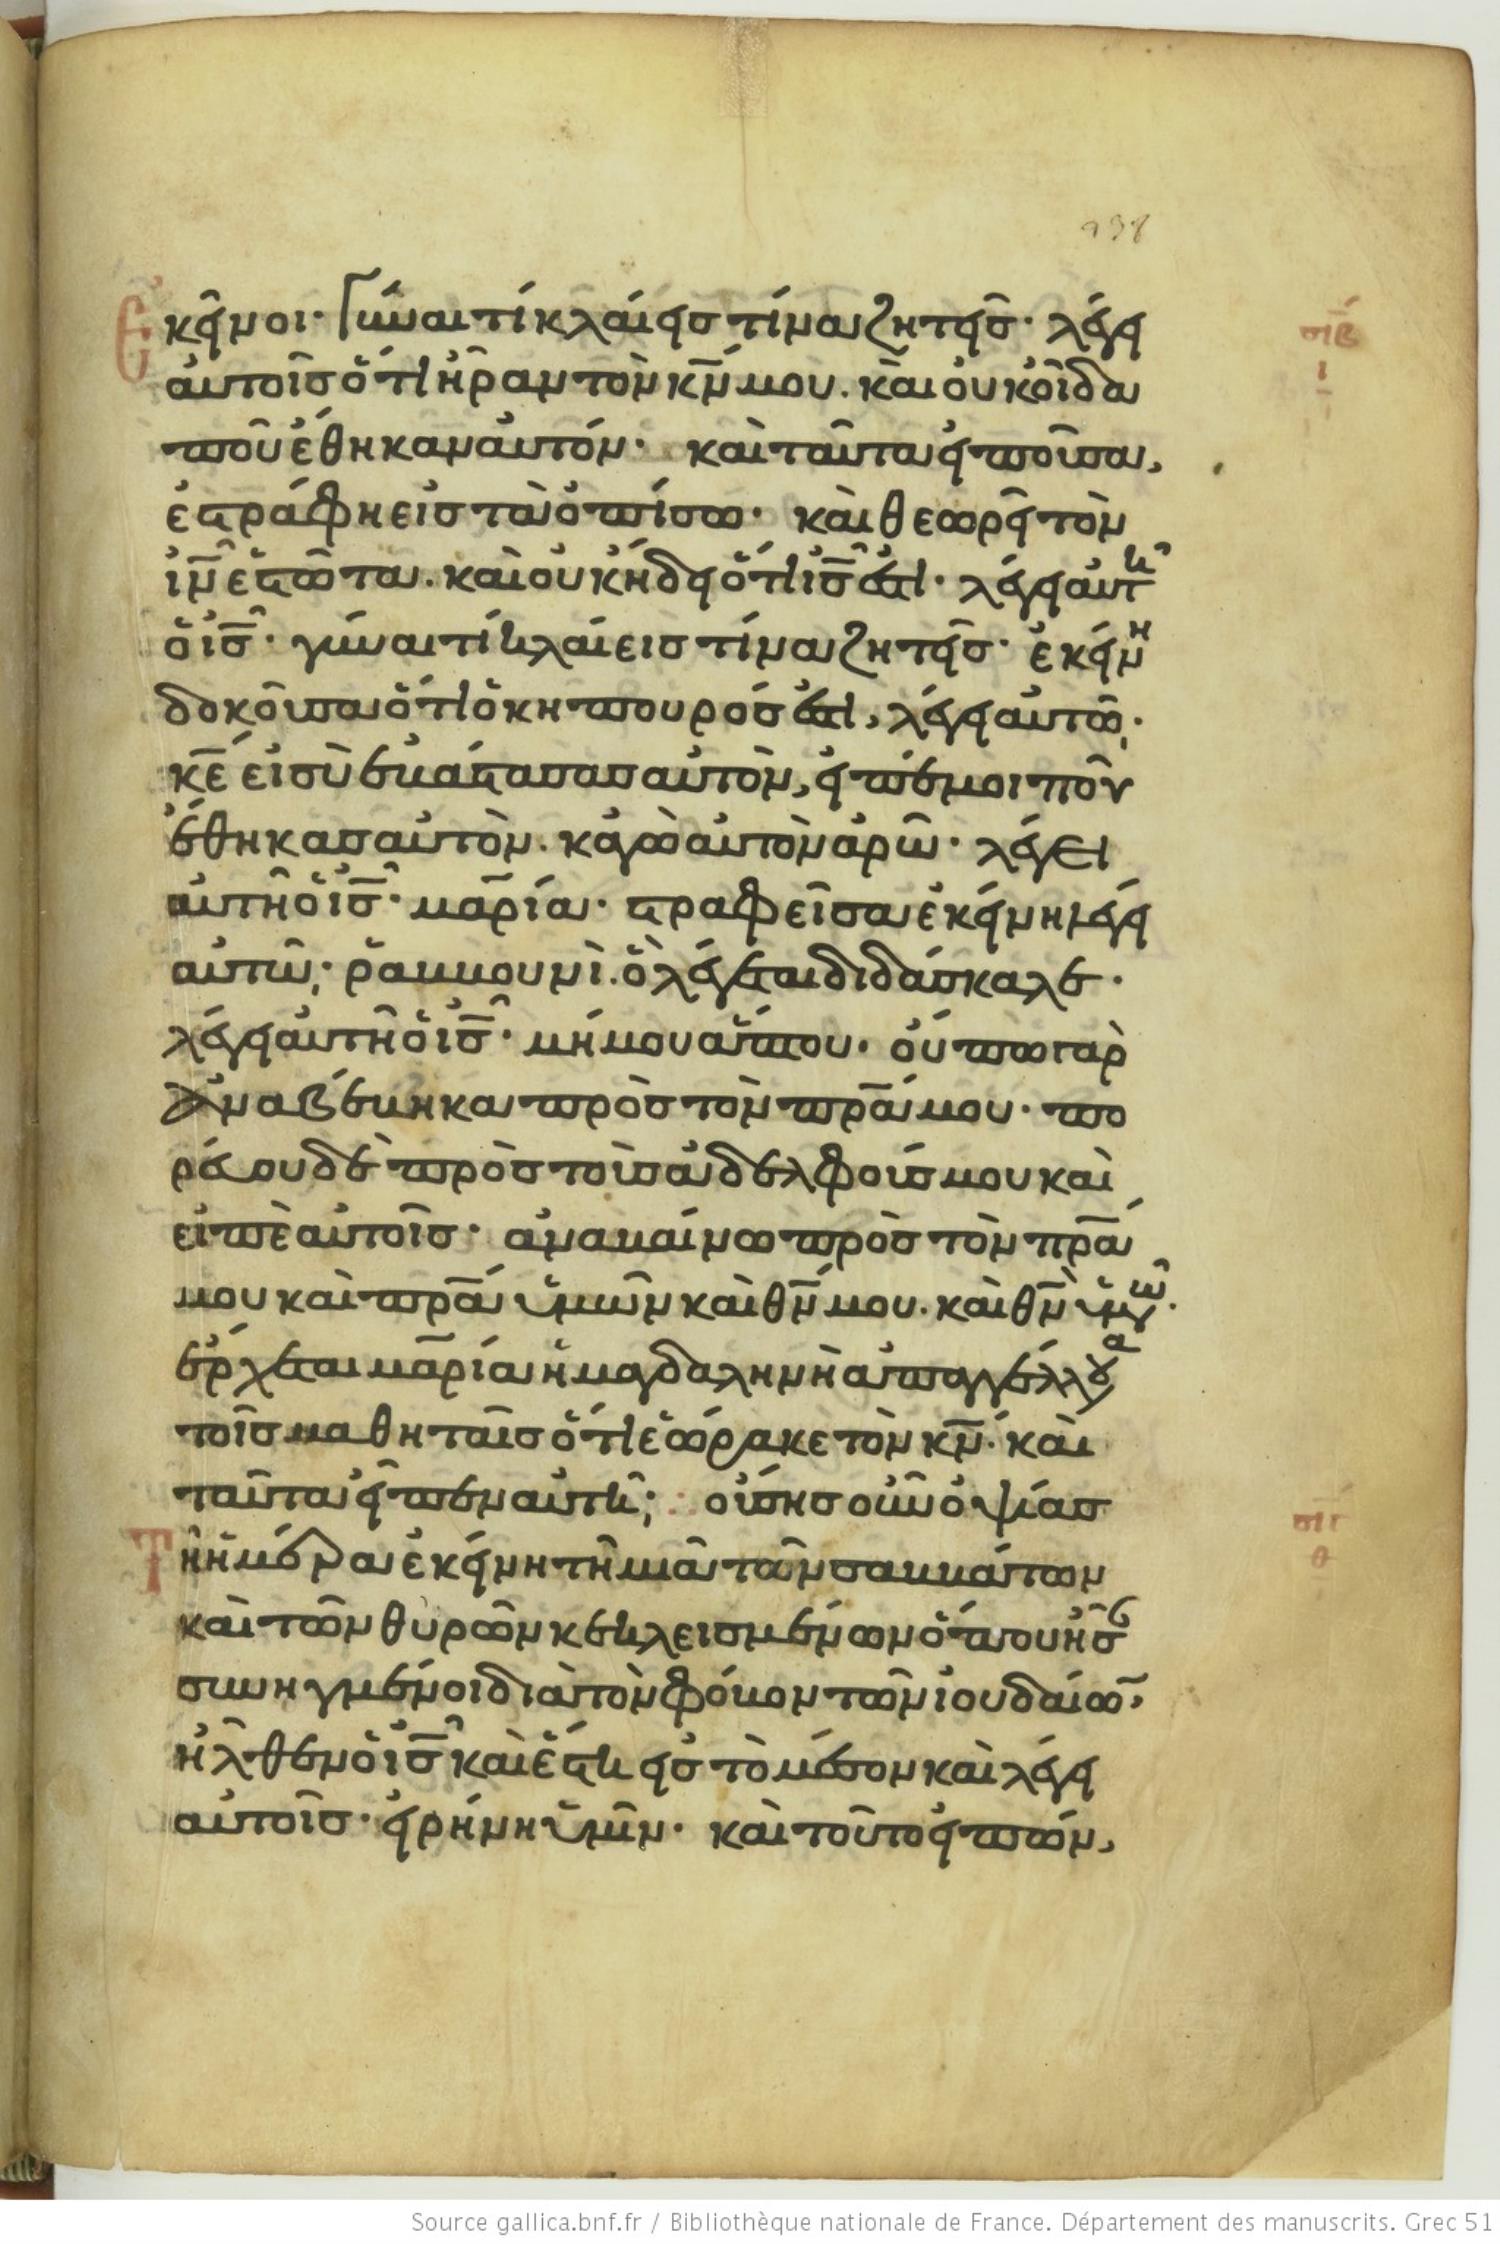 238
ἐκεῖνοι· Γύναι τί κλαίεισ τίνα ζητεῖσ· λέγει
αὐτοῖσ ὅτι ἦραν τὸν κ̅ν̅ μου. καὶ οὐκ οἶδα
ποῦ ἔθηκαν αὐτόν· καὶ ταῦτα εἰποῦσα,
ἐστράφη εἰσ τὰ ὀπίσω· καὶ θεωρεῖ τὸν
ι̅ν̅ ἑστῶτα. καὶ οὐκ ἤδει ὅτι ι̅σ̅ ἐστι· λέγει αὐτῆ
ὁ ι̅σ̅· γύναι τί κλαίεισ τίνα ζητεῖσ· ἐκείνη
δοκοῦσα ὅτι ὁ κηπουρόσ ἐστι, λέγει αὐτῶ,·
κ̅ε̅ εἰ σὺ ἐβάστασασ αὐτὸν, εἰπέ μοι ποῦ
ἔθηκασ αὐτὸν. κἀγὼ αὐτὸν ἀρῶ· λέγει
αὐτῆ ὁ ι̅σ̅· μαρία· στραφεῖσα ἐκείνη λέγει
αὐτῶ,· ῥαββουνὶ. ὃ λέγεται διδάσκαλε·
λέγει αὐτῆ ὁ ι̅σ̅· μή μου ἅπτου· οὔπω γὰρ
ἀναβέβηκα πρὸσ τὸν π̅ρ̅α̅ μου· πο
ρεύου δὲ πρὸσ τοὺσ ἀδελφούσ μου καὶ
εἰπὲ αὐτοῖσ· ἀναβαίνω πρὸσ τὸν π̅ρ̅α̅
μου καὶ π̅ρ̅α̅ ὑμῶν καὶ θ̅ν̅ μου. καὶ θ̅ν̅ ὑμῶν.
ἔρχεται μαρία ἡ μαγδαληνὴ ἀπαγγέλλουσα
τοῖσ μαθηταῖσ ὅτι ἑώρακε τὸν κ̅ν̅· καὶ
ταῦτα εἶπεν αὐτῆ,· οὔσησ οὖν ὀψίασ
Τῆ ἡμέρα ἐκείνη τῆ μιᾶ τῶν σαββάτων
καὶ τῶν θυρῶν κεκλεισμένων ὅπου ἦσ
συνηγμένοι διὰ τὸν φόβον τῶν ἰουδαίω̅,
ἦλθεν ὁ ι̅σ̅ καὶ ἔστη εἰσ τὸ μέσον καὶ λέγει
αὐτοῖσ· εἰρήνη ὑμῖν· καὶ τοῦτο εἰπών,
σιβ
ι
σιγ
θ
Source gallica.bnf.fr / Bibliothèque nationale de France. Département des manuscrits. Grec 51